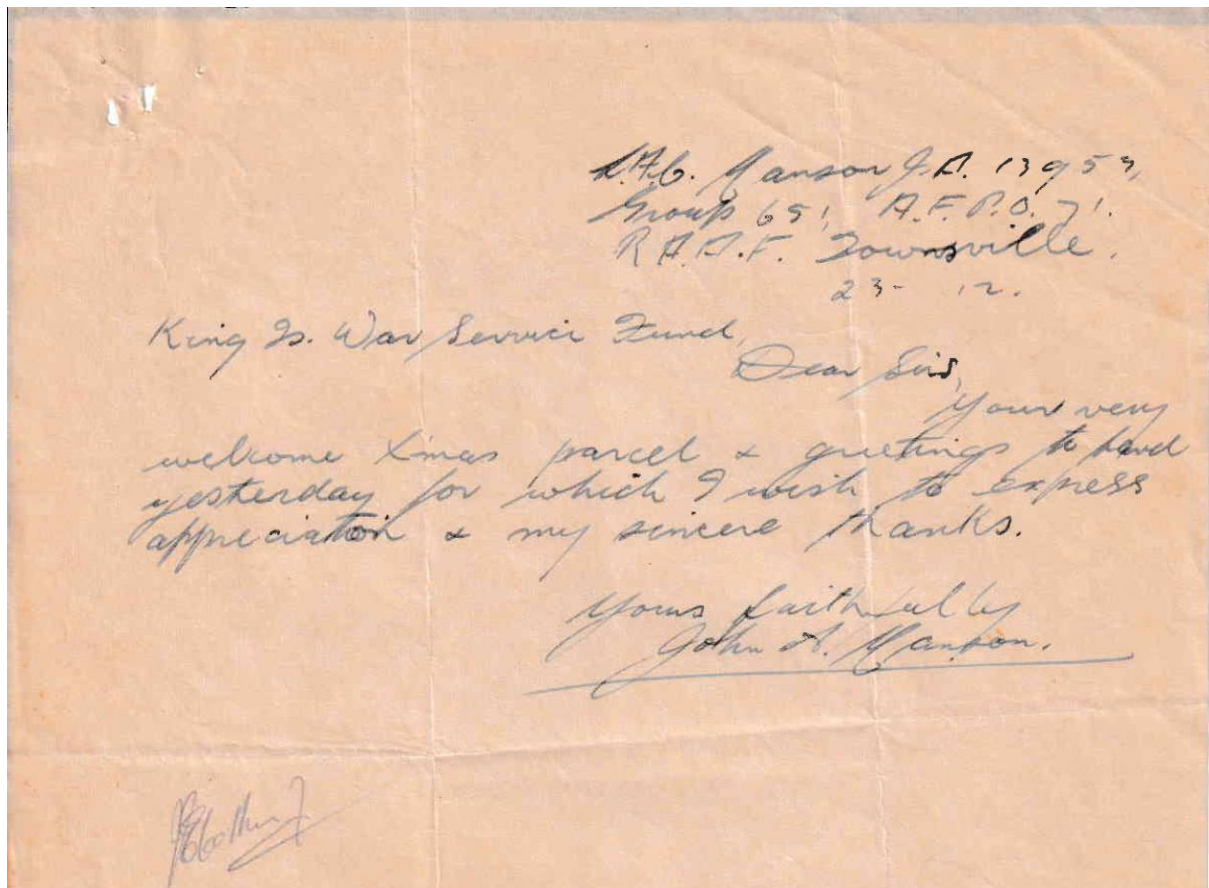 L.A.C. Manson J.A. 13953,
Group 651, A.F.P.O. 71.
R.A.A.F. Townsville.
23- 12.
King Is. War Service Fund,
Dear Sirs,
Your very
welcome Xmas parcel & greetings to hand
yesterday for which I wish to express
appreciation & my sincere thanks.
Yours faithfully
John A. Manson.